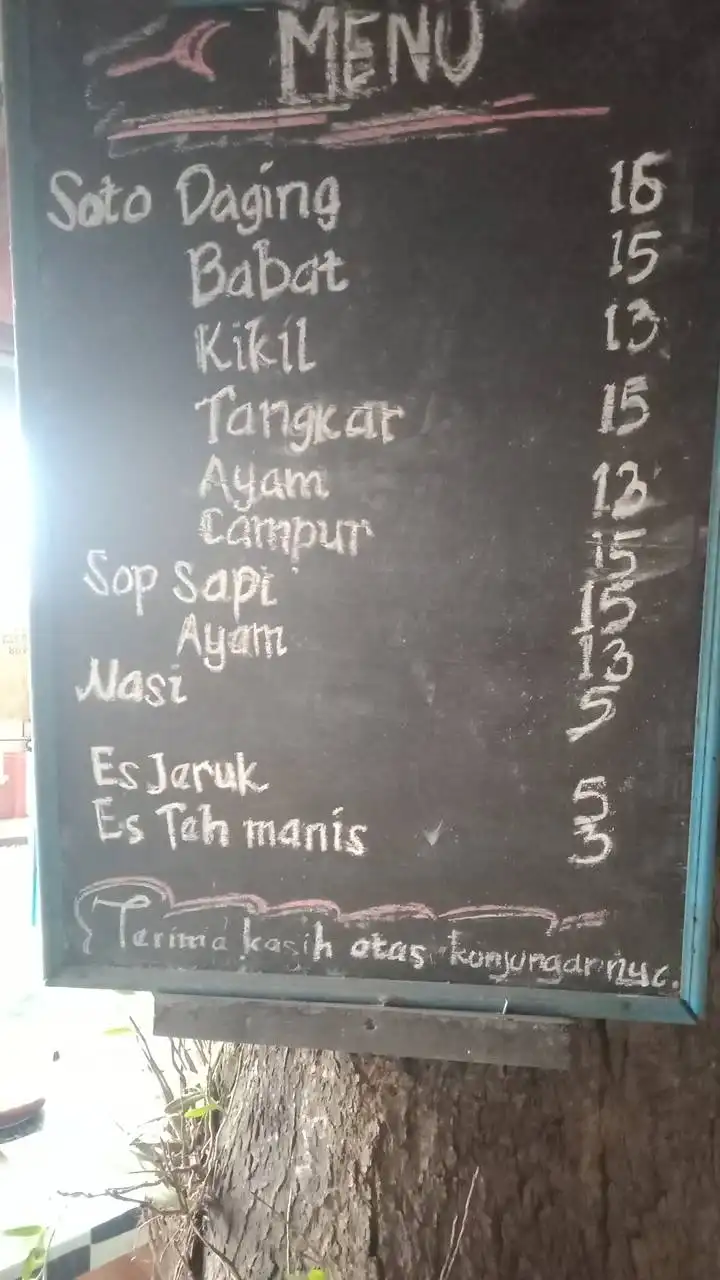 MENU
Soto Daging 16
Babat 15
Kikil 13
Tangkar 15
Ayam 13
Campur 15
Sop Sapi 15
Ayam 13
Nasi 5
Es Jeruk 5
Es Teh manis 3
Terima kasih atas kunjungannya.